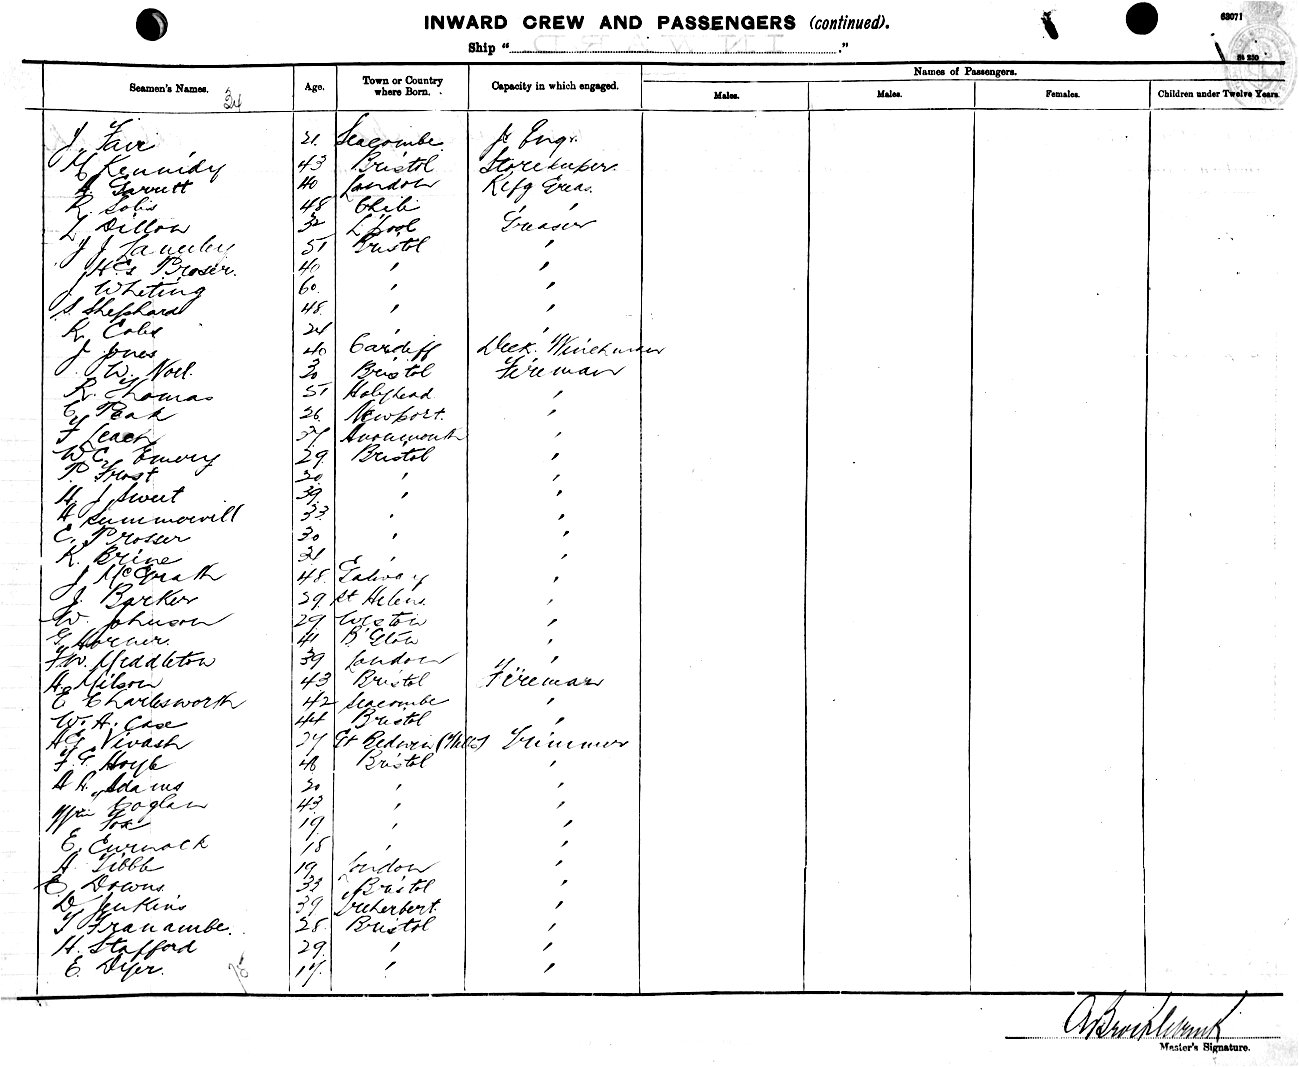 INWARD CREW AND PASSENGERS (continued).
Ship " ."
63071
Seamen's Names. Age. Town or Country where Born. Capacity in which engaged. Names of Passengers.
Males. Males. Females. Children under Twelve Years.
34
J. Fair 21 Seacombe Jr Engr.
M Kennidy 43 Bristol Storekeeper
A. Garrutt 40 London Refg Greas.
R. Solis 48 Chili "
L Dillon 32 L'pool Greaser
J J 51 Bristol "
40 " "
J. Whiting 60 " "
S. Shephard 48 " "
R. Cole 24 " "
J Jones 40 Cardiff Deck Winchman
W. Noel 30 Bristol Fireman
R. Thomas 51 Holyhead "
C Peak 26 Newport "
F Leach 37 Avonmouth "
W C Emery 29 Bristol "
P. Frost 30 " "
H. J Sweet 39 " "
A Summerwill 33 " "
C. Prosser 30 " "
K. Brine 31 " "
J McGrath 48 Galway "
J. Barker 29 St Helens "
W. Johnson 29 Weston "
G Horner 41 B'Glow "
F W. Middleton 39 London "
A. Milson 43 Bristol Fireman
E Charlesworth 42 Seacombe "
W. H. Case 44 Bristol "
A G Vivash 27 Gt Bedwin (Wilts) Trimmer
F. G. Hoyle 48 Bristol "
A A. Adams 20 " "
Wm Coglan 43 " "
Fox 19 " "
E. Curnock 18 " "
A Tibble 19 London "
C. Downs 33 Bristol "
D Jenkins 39 Treherbert "
T Franambe 28 Bristol "
H. Stafford 29 " "
E. Dyer 17 " "
A Brocklebank
Master's Signature.